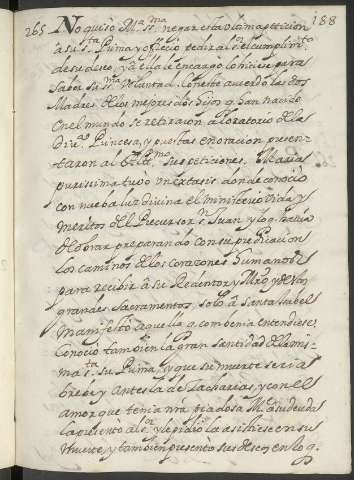 188
265 No quiso M.ª ss.ma negar esta ultima peticion
a su s.ta Prima, y ofrecio pedir al S.r el cumplim.to
de su deseo, y a ella le encargo lo hiciese para
saber su ss.ma voluntad. Con este acuerdo las dos
Madres de los mejores dos Hijos q. han nacido
en el mundo se retiraron al oratorio de la
Div.na Princesa, y puestas en oracion presen-
taron al Altt.mo sus peticiones. Maria
purissima tubo un extasis, donde conocio
con nueba luz divina el ministerio, vida y
meritos del Precursor S.n Juan y lo q. havia
de obrar preparando con su predicacion
los caminos de los corazones humanos
para recibir à su Redentor y Mro. y de los
grandes sacramentos, solo à Santa Isabel
manifesto aquello q. combenia entendiese.
Conocio tambien la gran santidad de la mis-
ma s.ta su Prima, y que su muerte seria
brebe y antes la de Zacharias, y con el
amor que tenia nrã piadosa M.e a su deuda
la presentò al S.r y le pidio la asistiese en su
muerte, y tambien presentò sus deseos en lo q.